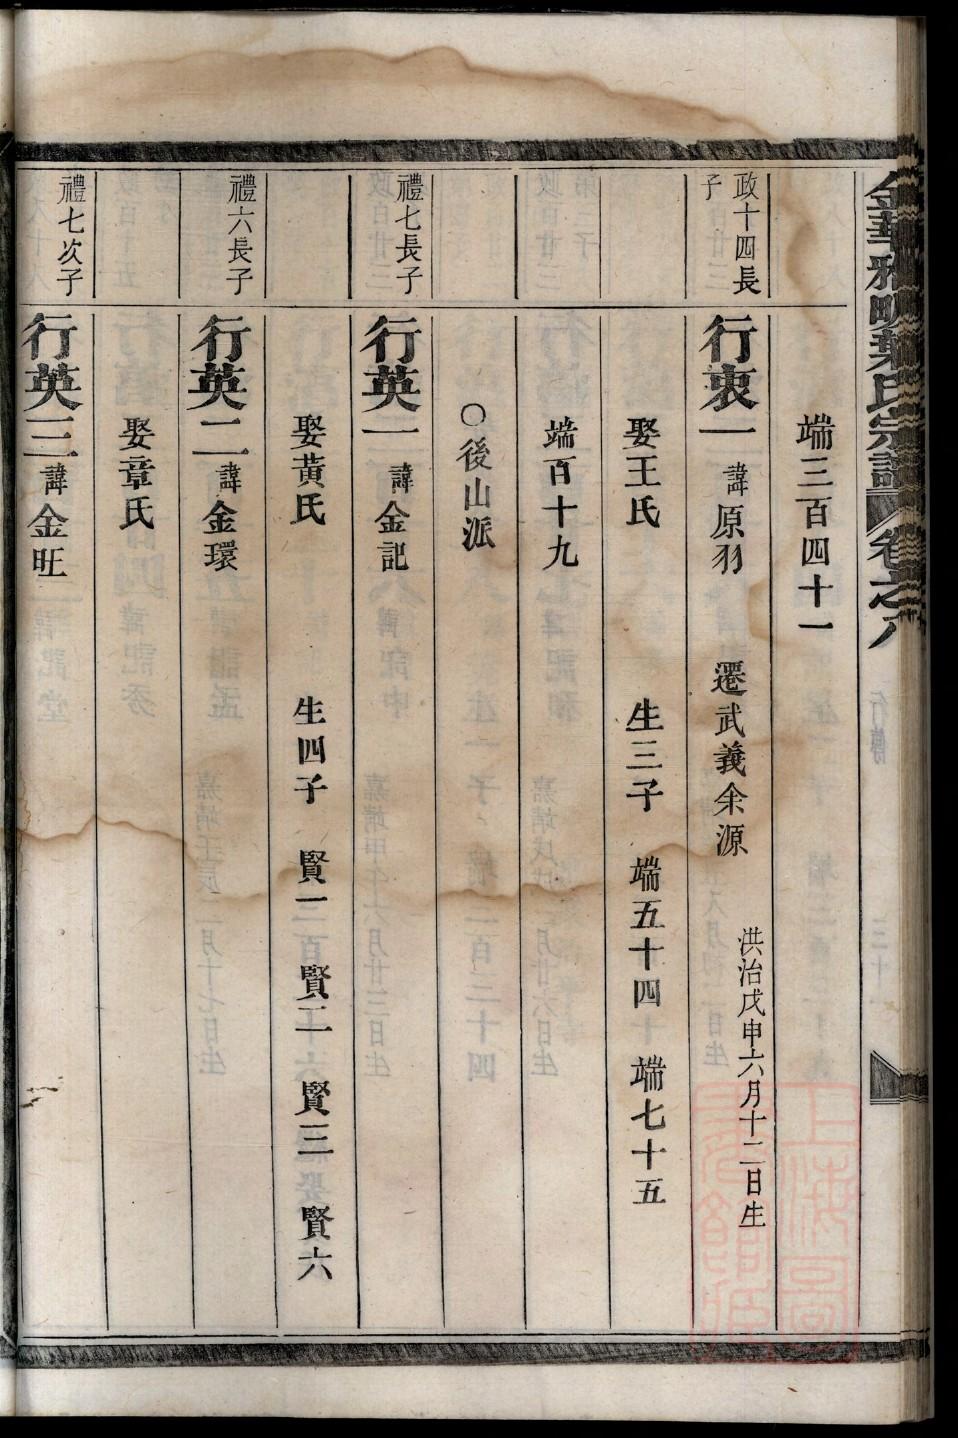 金華雅畈葉氏宗譜 卷之八 行傳
端三百四十一
政十四長子
行衷一 諱原羽 遷武義余源 洪治戊申六月十二日生
娶王氏 生三子 端五十四 端七十五
端百十九
○後山派
禮七長子
行英一 諱金記
娶黃氏 生四子 賢一 賢二 賢三 賢六
禮六長子
行英二 諱金環
娶章氏
禮七次子
行英三 諱金旺
上海圖書館藏